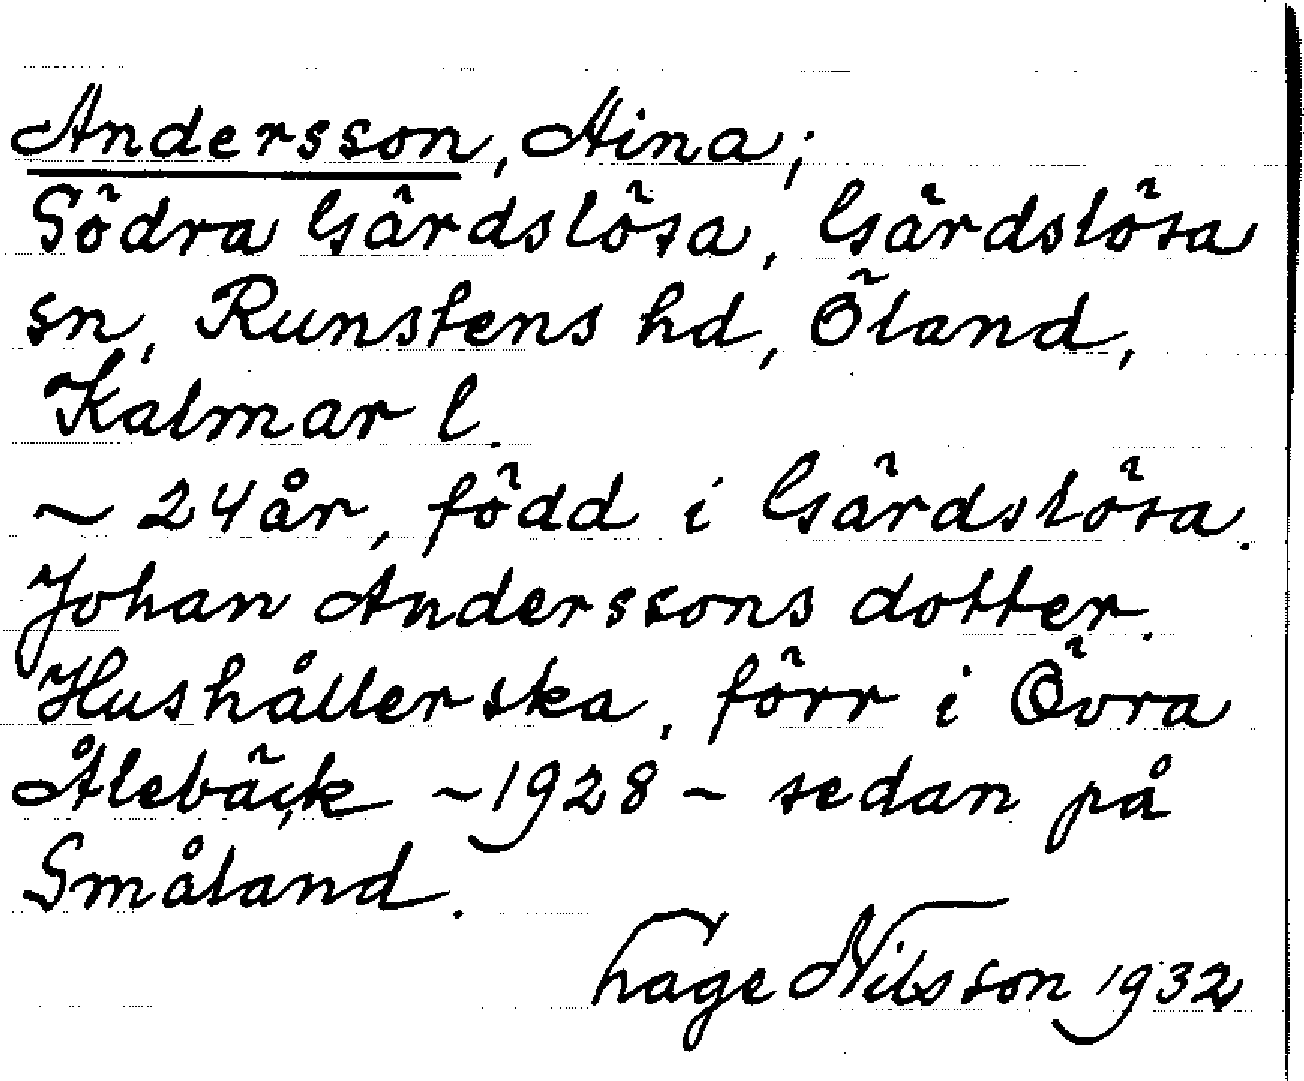 Andersson, Nina;
Södra Gärdslösa, Gärdslösa
sn, Runstens hd, Öland,
Kalmar l.
~ 24 år, född i Gärdslösa.
Johan Anderssons dotter.
Hushållerska, förr i Övra
Ålebäck ~1928~ sedan på
Småland.
Hage Nilsson 1932